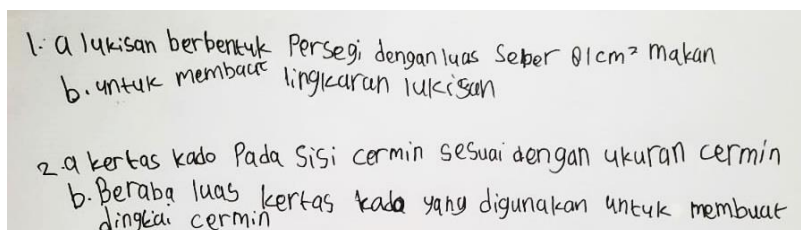 1. a lukisan berbentuk Persegi dengan luas Seber 81cm² makan
b. untuk membaut lingkaran lukisan
2. a kertas kado Pada Sisi cermin sesuai dengan ukuran cermin
b. Beraba luas kertas kado yang digunakan untuk membuat
dingkai cermin